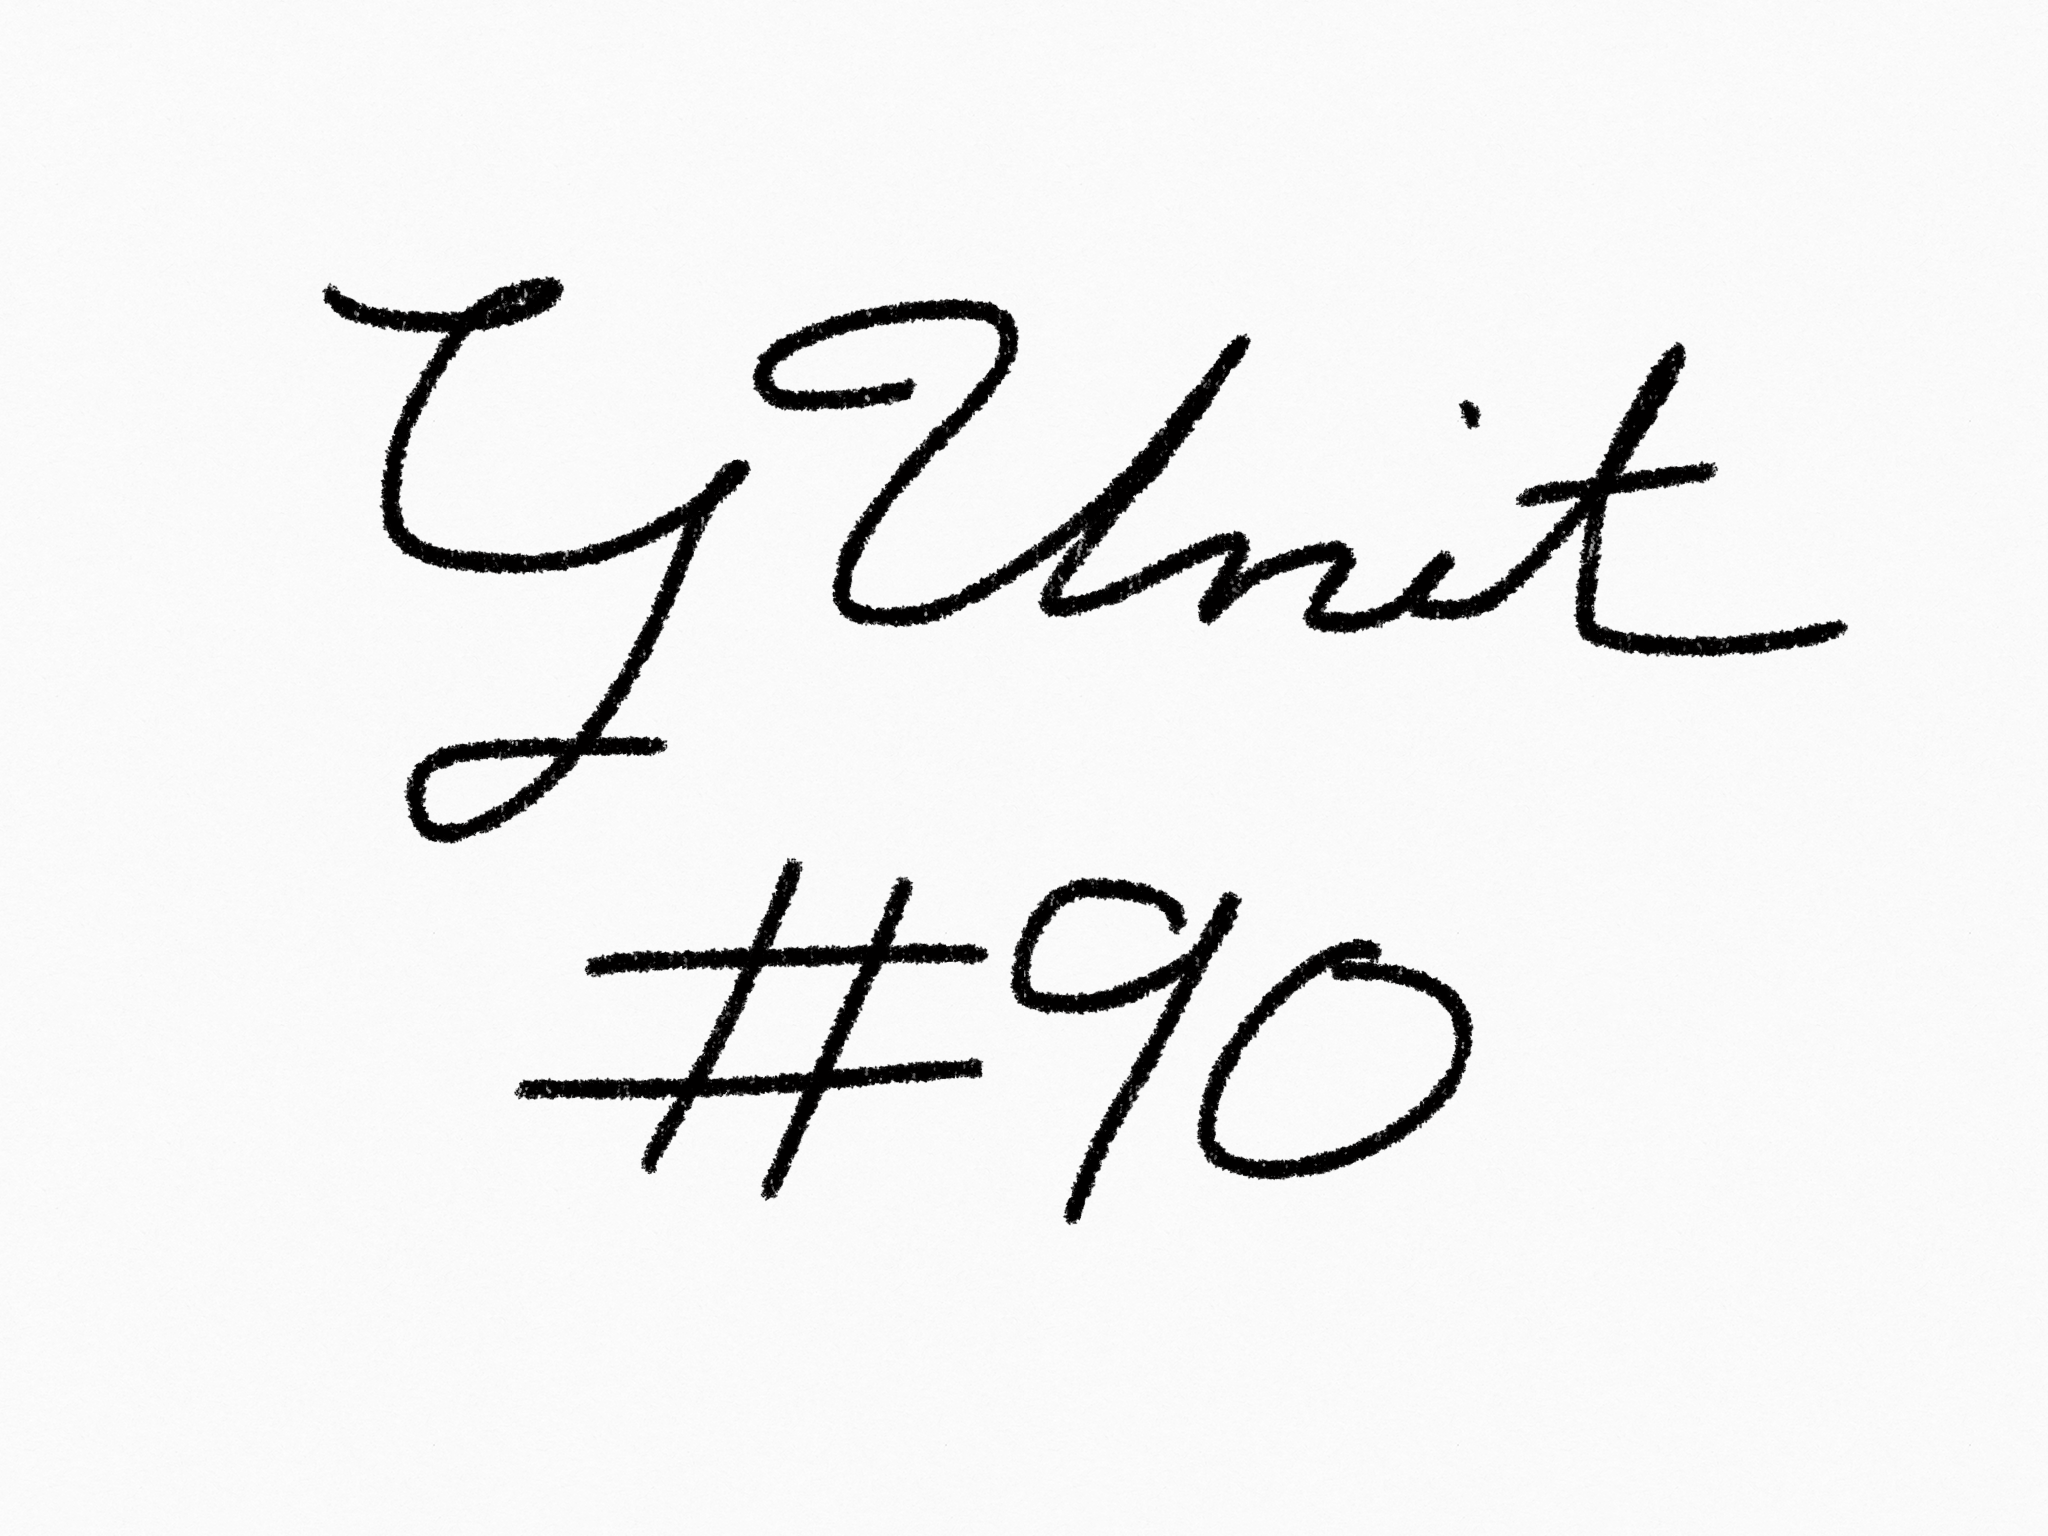 G Unit
#90